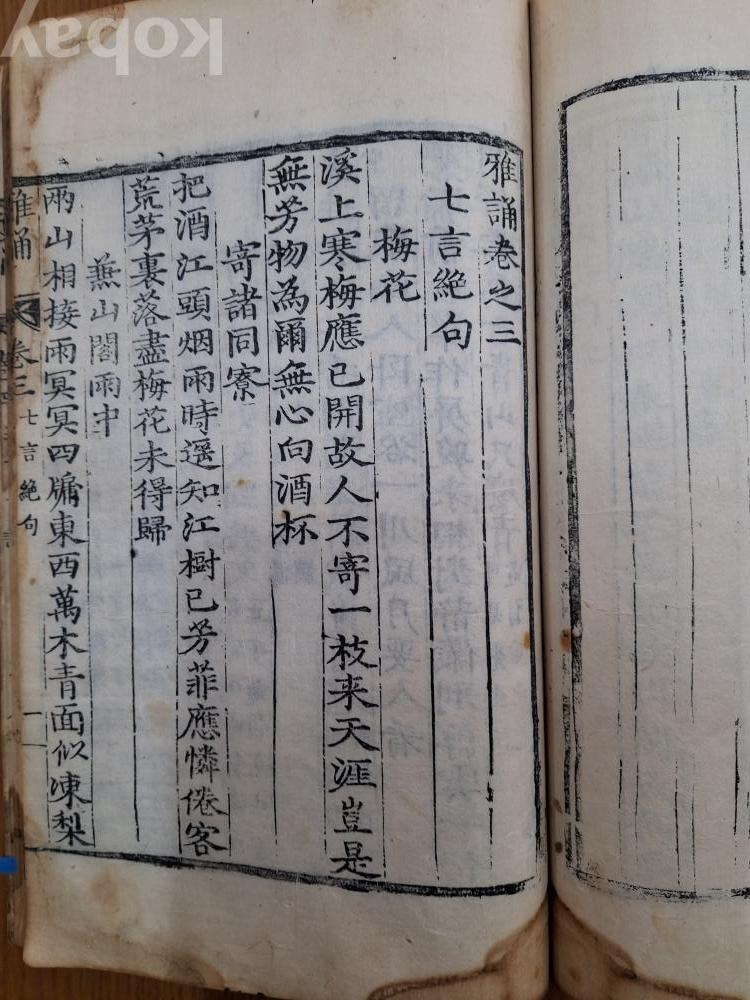 雅誦卷之三
七言絕句
梅花
溪上寒梅應已開故人不寄一枝来天涯豈是
無芳物為爾無心向酒杯
寄諸同寮
把酒江頭烟雨時遥知江樹已芳菲應憐倦客
荒茅裏落盡梅花未得歸
燕山閣雨中
兩山相接雨冥冥四牖東西萬木青面似凍梨
雅誦 卷三 七言絕句 一
kobay